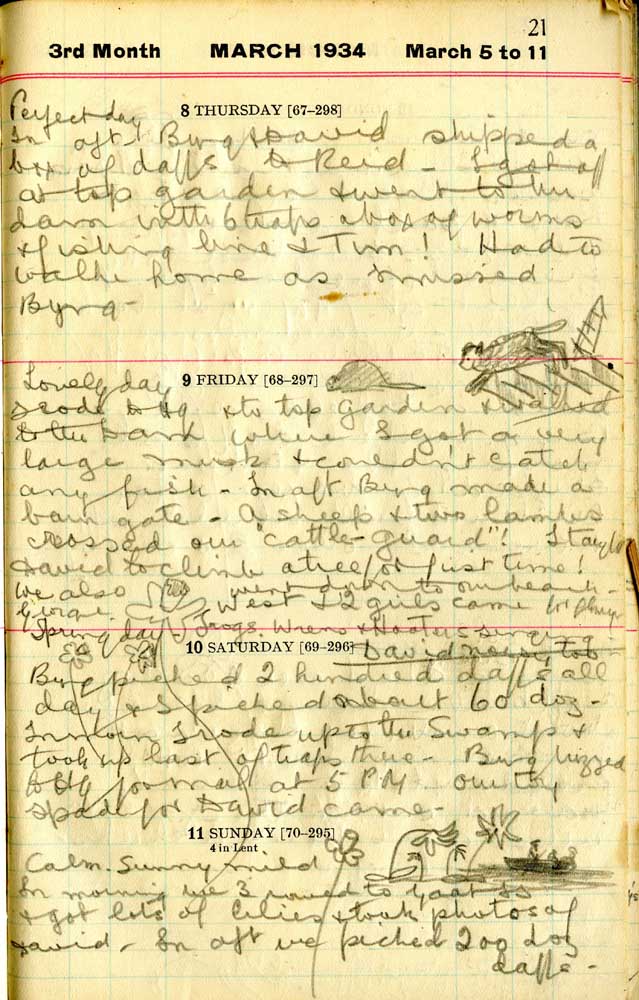 21
3rd Month MARCH 1934 March 5 to 11
Perfect day 8 THURSDAY [67–298]
In aft. Burg & David shipped a
box of daffs to Reid – I got off
at top garden & went to the
dam with 6 traps a box of worms
& fishing line & Tim! Had to
walk home as I missed
Byrg –
Lovely day 9 FRIDAY [68–297]
I rode to Hq & to top garden & walked
to the Dam where I got a very
large musk & couldn't catch
any fish – In aft Burg made a
barn gate – A sheep & two lambs
crossed our "cattle-guard"! I taught
David to climb a tree for first time!
We also went down to our beach –
West & 2 girls came for
Spring day Frogs, Wrens & Hooters singing
10 SATURDAY [69–296] David noisy too
Burg picked 2 hundred daffs all
day & I picked about 60 doz –
In morn I rode up to the Swamp &
took up last of traps there – Burg
to Hq for mail at 5 PM our toy
spade for David came –
11 SUNDAY [70–295]
4 in Lent
Calm. Sunny mild
In morning we 3 rowed to Goat Is
& got lots of lilies & took photos of
David – In aft we picked 200 doz
daffs –